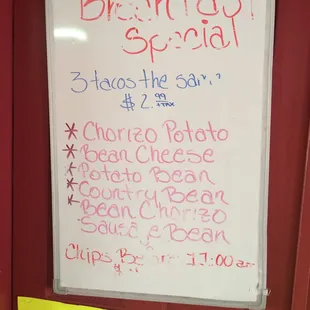 Breakfast
Special
3 tacos the same
$2.99
+TAX
* Chorizo Potato
* Bean Cheese
* Potato Bean
* Country Bean
Bean Chorizo
Sausa e Bean
Chips Before 11:00 am
$